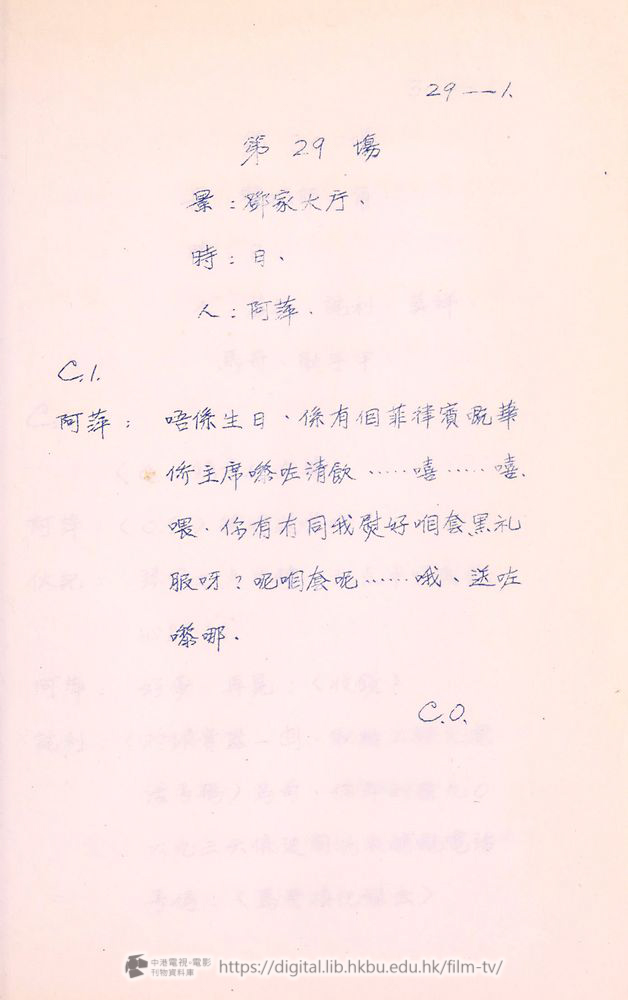 29—1.
第 29 場
景：鄧家大厅、
時：日、
人：阿萍.
C.I.
阿萍： 唔係生日、係有個菲律賓嘅華
侨主席嚟左請飲……嘻……嘻.
喂.你有冇同我熨好咱套黑礼
服呀？呢咱套呢……哦、送左
嚟哪.
C.O.
中港電視·電影
刊物資料庫
https://digital.lib.hkbu.edu.hk/film-tv/